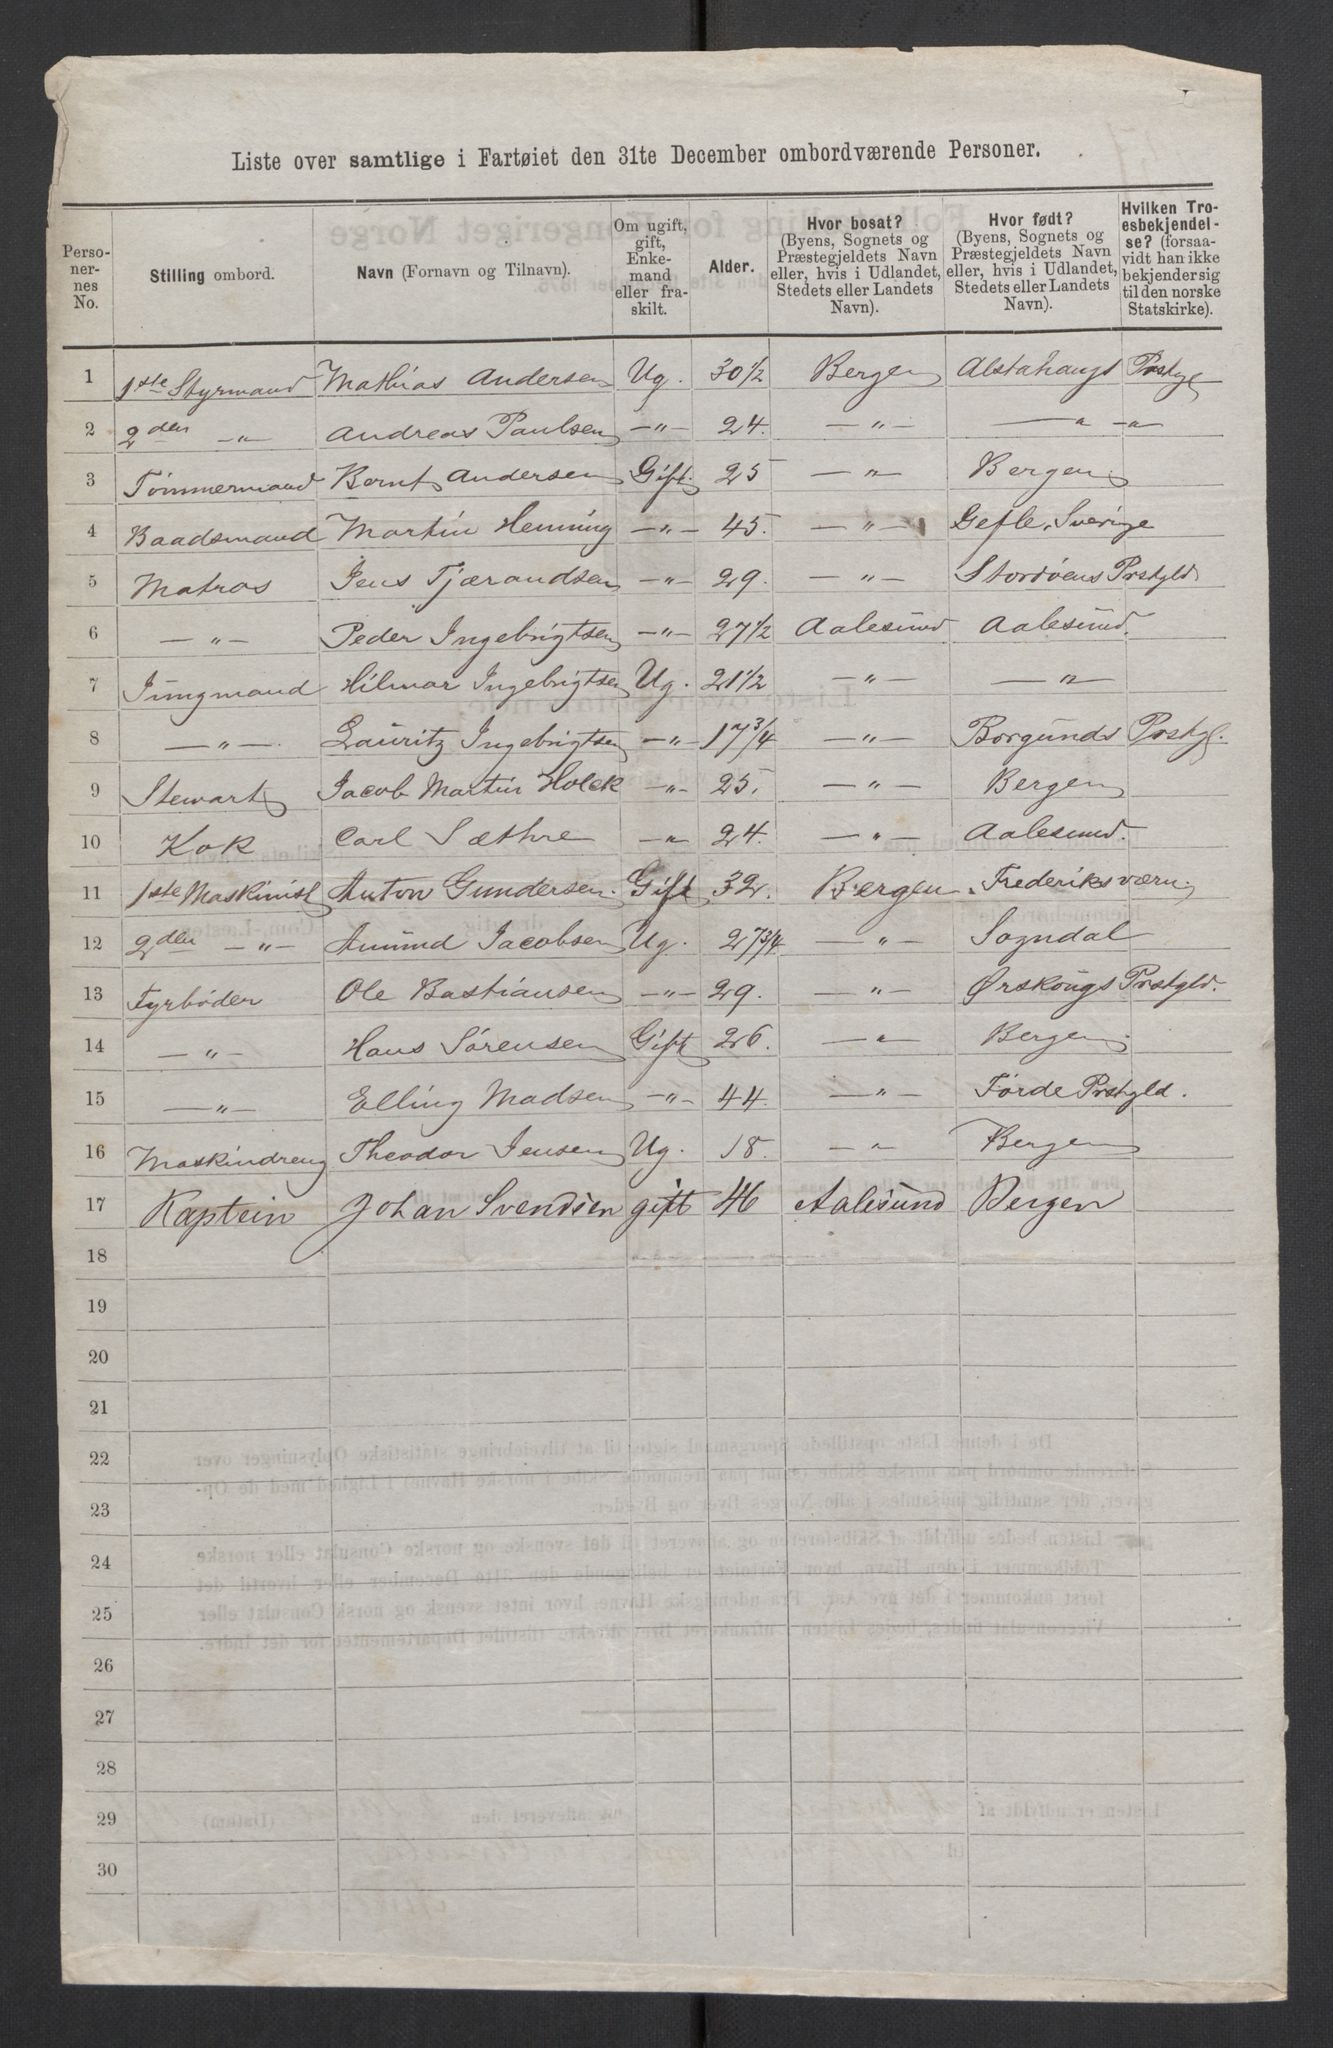 Liste over samtlige i Fartøiet den 31te December ombordværende Personer.
Perso-
ner-
nes
No.
Stilling ombord.
Navn (Fornavn og Tilnavn).
Om ugift,
gift,
Enke-
mand
eller fra-
skilt.
Alder.
Hvor bosat?
(Byens, Sognets og
Præstegjeldets Navn
eller, hvis i Udlandet,
Stedets eller Landets
Navn).
Hvor født?
(Byens, Sognets og
Præstegjeldets Navn
eller, hvis i Udlandet,
Stedets eller Landets
Navn).
Hvilken Tro-
esbekjendel-
se? (forsaa-
vidt han ikke
bekjender sig
til den norske
Statskirke).
1 1ste Styrmand Mathias Andersen Ug. 30 1/2 Bergen Alstahaugs Prstgl
2 2den —"— Andreas Paulsen —"— 24. —"— —"— —"—
3 Tömmermand Bernt Andersen Gift. 25 —"— Bergen
4 Baadsmand Martin Henning —"— 45. —"— Gefle, Sverige
5 Matros Jens Tjærandsen —"— 29. —"— Stordöens Prstgld
6 —"— Peder Ingebrigtsen —"— 27 1/2 Aalesund Aalesund.
7 Jungmand Hilmar Ingebrigtsen Ug. 21 1/2 —"— —"—
8 —"— Lauritz Ingebrigtsen —"— 17 3/4 —"— Borgunds Prstgl.
9 Stewart Jacob Martin Holck —"— 25. —"— Bergen
10 Kok Carl Sæthre —"— 24. —"— Aalesund.
11 1ste Maskinist Anton Gundersen. Gift 32. Bergen Frederiksværn
12 2den —"— Amund Jacobsen Ug. 27 3/4 —"— Sogndal
13 Fyrböder Ole Bastiansen —"— 29. —"— Ørskougs Prstgld.
14 —"— Hans Sörensen Gift 26. —"— Bergen
15 —"— Elling Madsen —"— 44. —"— Förde Prstgld.
16 Maskindreng Theodor Jensen Ug. 18. —"— Bergen
17 Kaptein Johan Svendsen gift 46 Aalesund Bergen
18
19
20
21
22
23
24
25
26
27
28
29
30